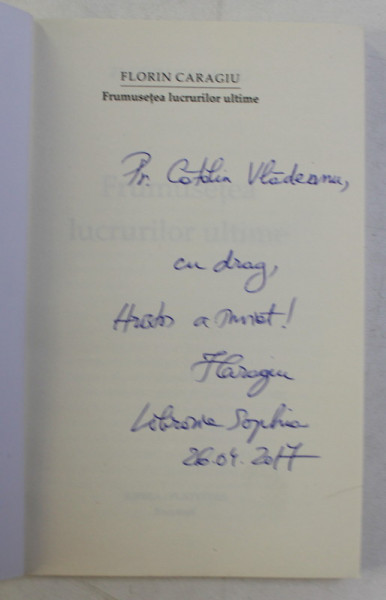 FLORIN CARAGIU
Frumusețea lucrurilor ultime
Pr. Cătălin Vlădeanu,
cu drag,
Hristos a înviat!
FCaragiu
Librăria Sophia
26.04.2017
Frumusețea
lucrurilor ultime